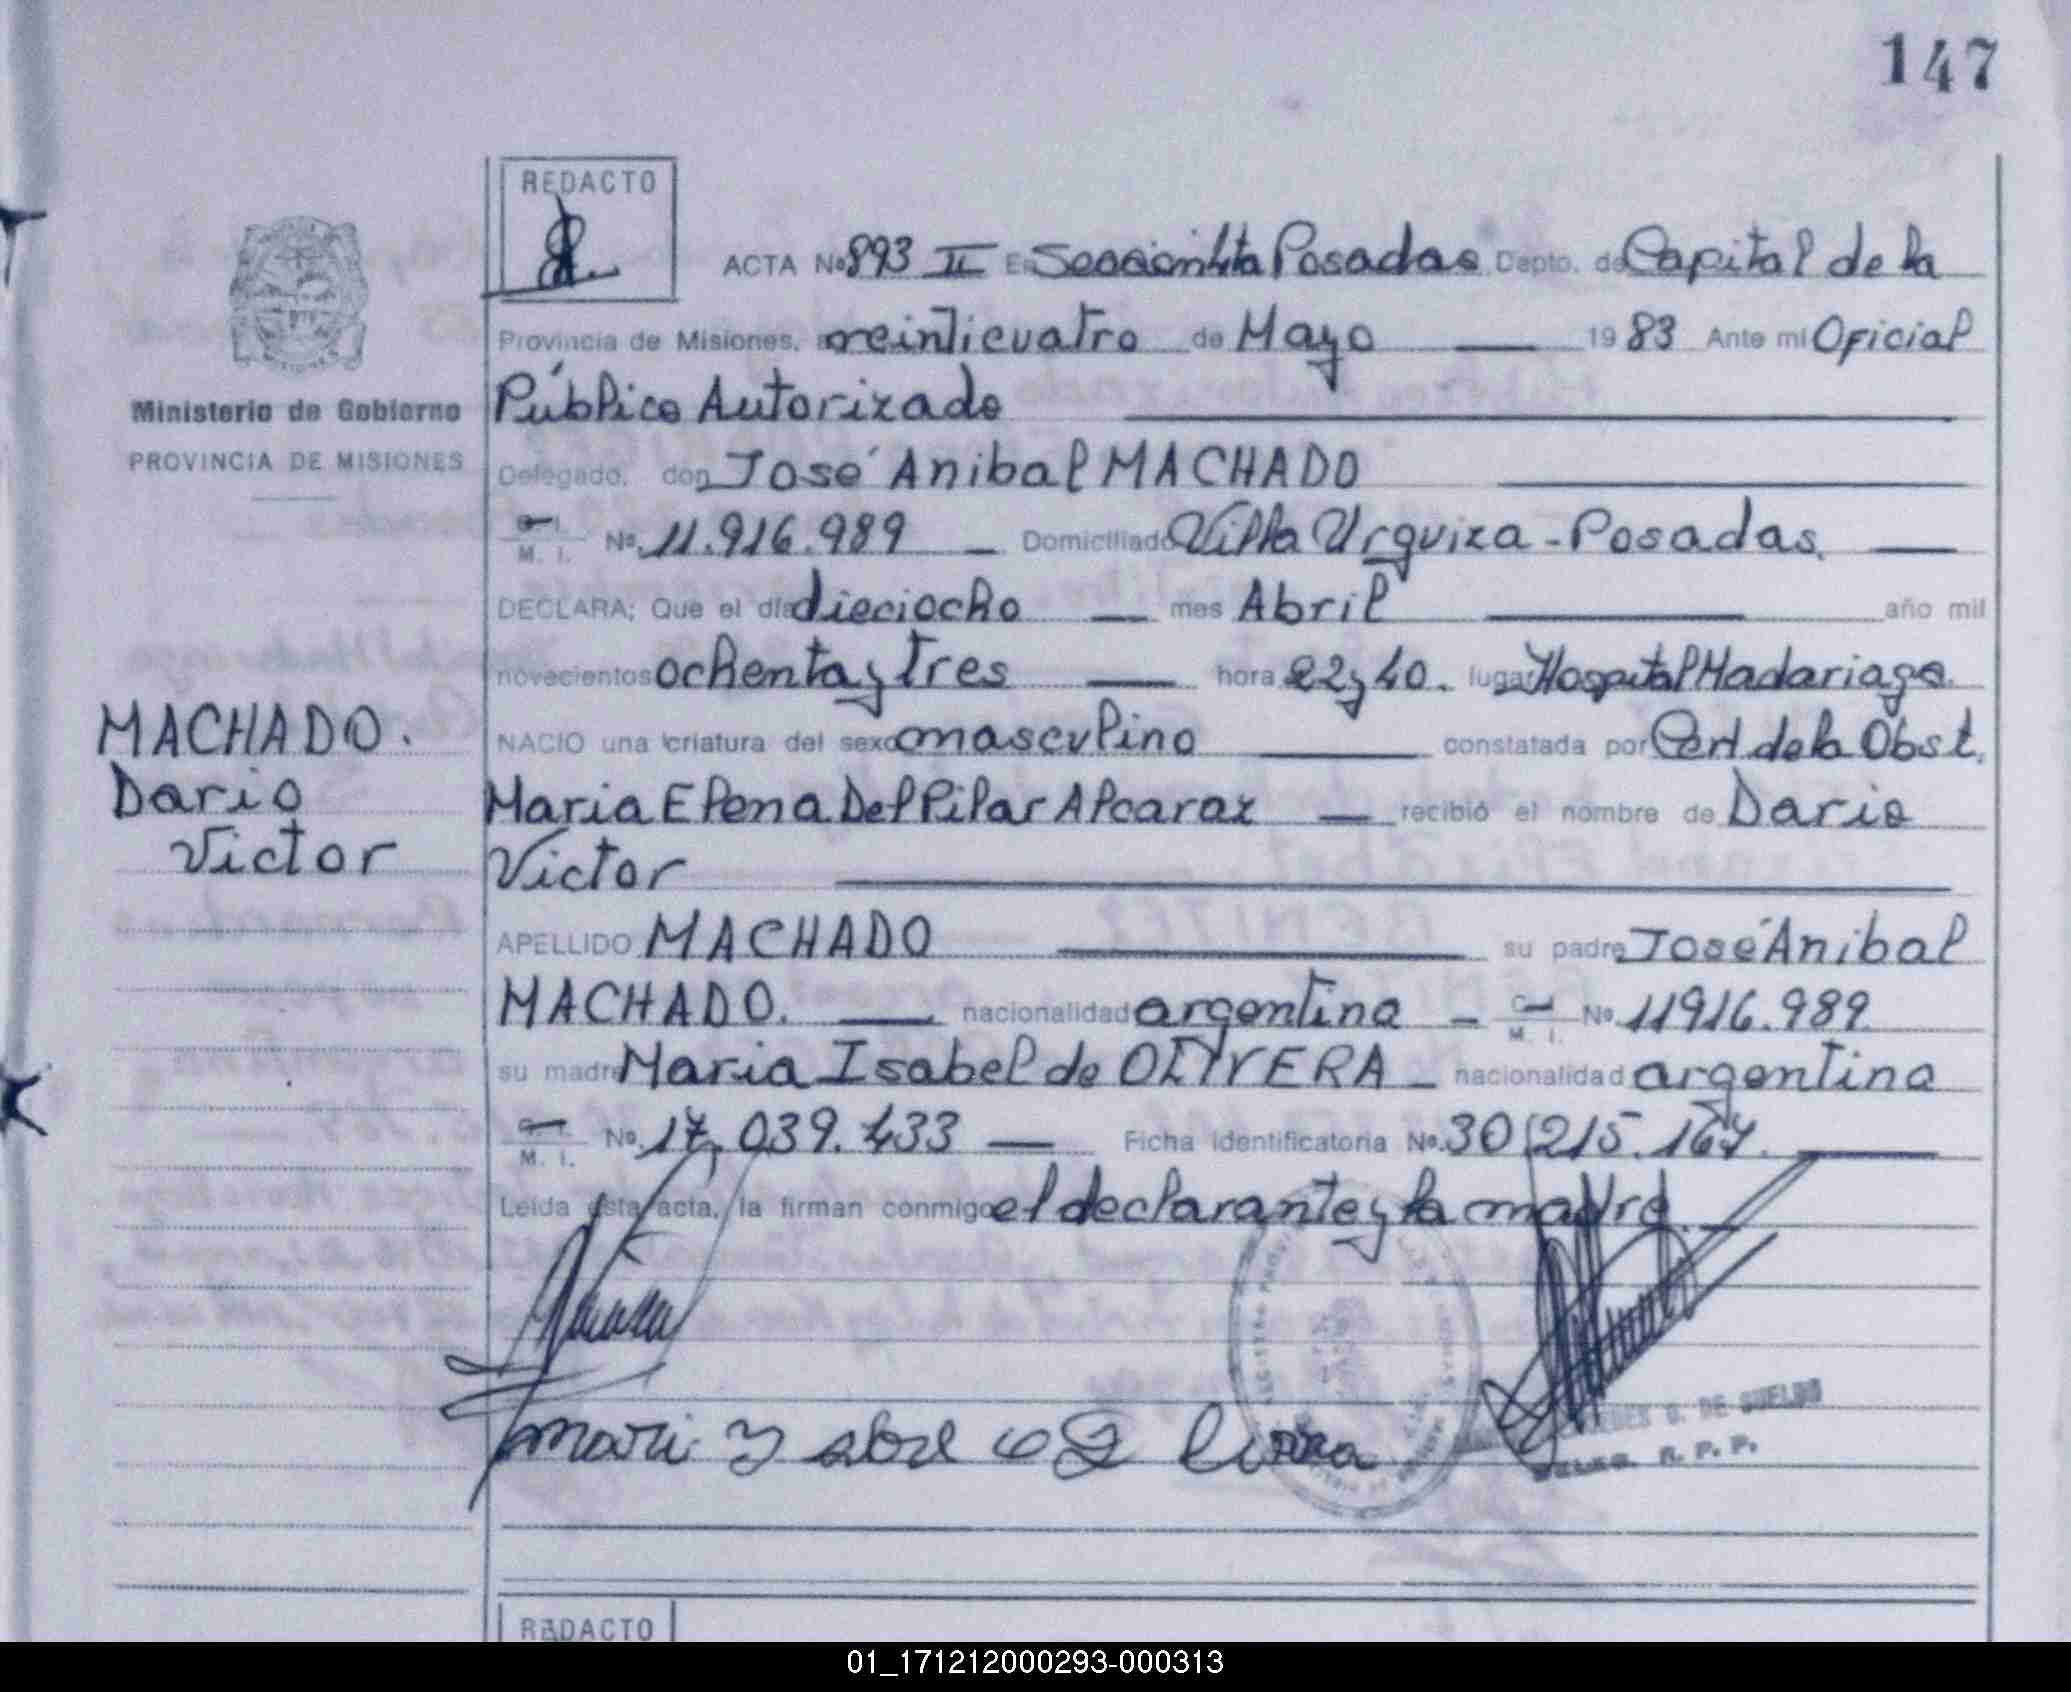 147
REDACTO
ACTA Nº 893 II En Sección 4ta Posadas Depto. de Capital de la
Provincia de Misiones, a veinticuatro de Mayo 1983 Ante mi Oficial
Ministerio de Gobierno
Público Autorizado
PROVINCIA DE MISIONES
Delegado, don José Anibal MACHADO
M. I. Nº 11.916.989 Domiciliado Villa Urquiza - Posadas.
DECLARA; Que el día dieciocho mes Abril año mil
novecientos ochenta y tres hora 22 y 40. lugar Hospital Madariaga.
MACHADO.
NACIO una criatura del sexo masculino constatada por Cert de la Obst.
Dario
Maria Elena Del Pilar Alcaraz recibió el nombre de Dario
Victor
Victor
APELLIDO MACHADO su padre José Anibal
MACHADO. nacionalidad argentina - C. I. M. I. Nº 11916.989
su madre Maria Isabel de OLIVERA - nacionalidad argentina
M. I. Nº 17.039.433 Ficha Identificatoria Nº 30.215.167.
Leída ésta acta, la firman conmigo el declarante y la madre.
DE SUELDO
R. P. P.
REDACTO
01_171212000293-000313